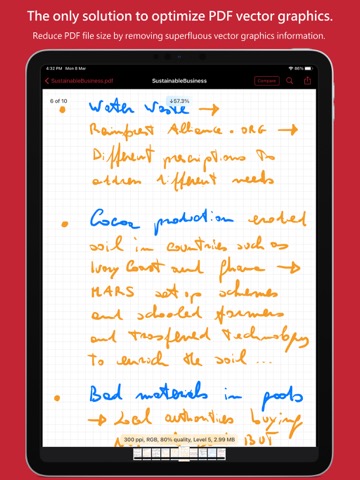 The only solution to optimize PDF vector graphics.
Reduce PDF file size by removing superfluous vector graphics information.
4:52 PM Mon 8 Mar
86%
SustainableBusiness.pdf
SustainableBusiness
Compare
6 of 10
↓57.3%
• Water Waste →
Rainforest Alliance.ORG →
Different prescriptions to
address different needs
• Cocoa production eroded
soil in countries such as
Ivory Coast and Ghana →
MARS set up schemes
and schooled farmers
and trasfered technology
to enrich the soil ...
• Bad materials in pods
→ Local authorities buying
BUT
300 ppi, RGB, 80% quality, Level 5, 2.99 MB